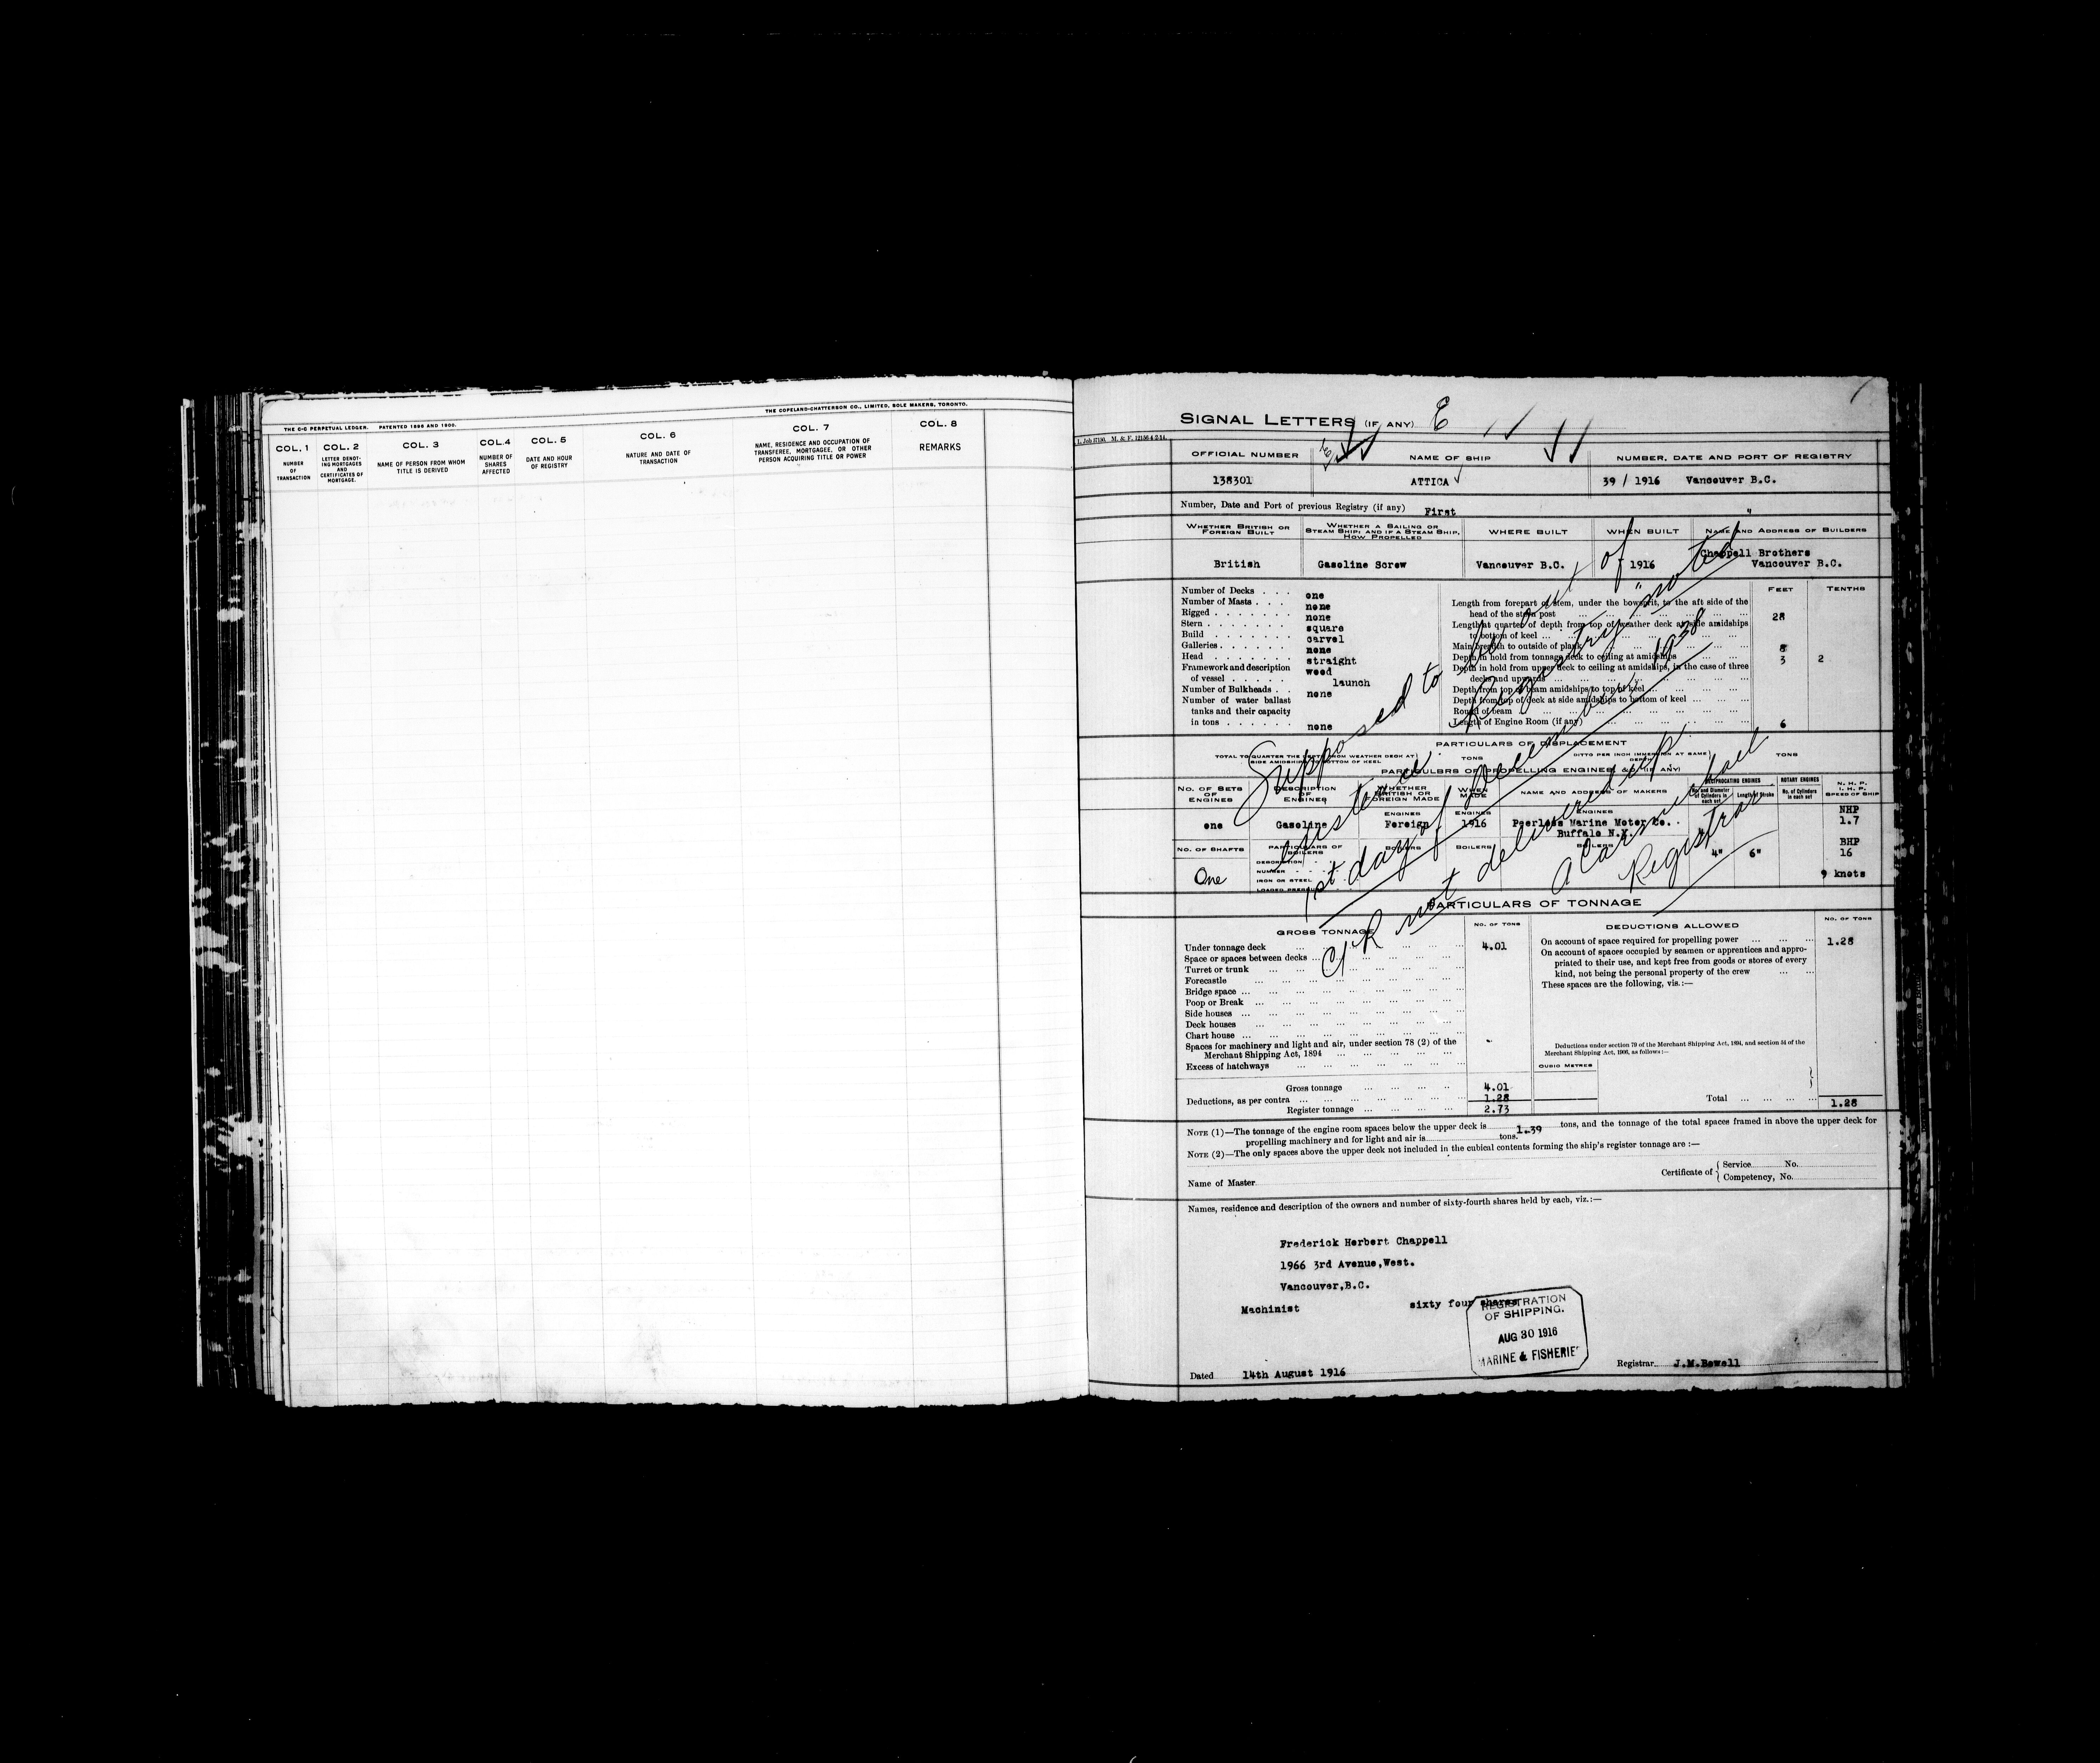 THE C-C PERPETUAL LEDGER. PATENTED 1896 AND 1900.
THE COPELAND-CHATTERSON CO., LIMITED, SOLE MAKERS, TORONTO.
COL. 1 COL. 2 COL. 3 COL. 4 COL. 5 COL. 6 COL. 7 COL. 8
NUMBER OF TRANSACTION
LETTER DENOTING MORTGAGES AND CERTIFICATES OF MORTGAGE.
NAME OF PERSON FROM WHOM TITLE IS DERIVED
NUMBER OF SHARES AFFECTED
DATE AND HOUR OF REGISTRY
NATURE AND DATE OF TRANSACTION
NAME, RESIDENCE AND OCCUPATION OF TRANSFEREE, MORTGAGEE, OR OTHER PERSON ACQUIRING TITLE OR POWER
REMARKS
SIGNAL LETTERS (IF ANY) E
OFFICIAL NUMBER NAME OF SHIP NUMBER, DATE AND PORT OF REGISTRY
138301 ATTICA 39 / 1916 Vancouver B.C.
Number, Date and Port of previous Registry (if any) First
WHETHER BRITISH OR FOREIGN BUILT
WHETHER A SAILING OR STEAM SHIP, AND IF A STEAM SHIP, HOW PROPELLED
WHERE BUILT WHEN BUILT NAME AND ADDRESS OF BUILDERS
British Gasoline Screw Vancouver B.C. 1916 Chappell Brothers
Vancouver B.C.
Number of Decks one
Number of Masts none
Rigged none
Stern square
Build carvel
Galleries none
Head straight
Framework and description of vessel wood launch
Number of Bulkheads none
Number of water ballast tanks and their capacity in tons none
FEET TENTHS
Length from forepart of stem, under the bowsprit, to the aft side of the head of the stern post 28
Length at quarter of depth from top of weather deck at side amidships to bottom of keel
Main breadth to outside of plank 8
Depth in hold from tonnage deck to ceiling at amidships 3 2
Depth in hold from upper deck to ceiling at amidships, in the case of three decks and upwards
Depth from top of beam amidships to top of keel
Depth from top of deck at side amidships to bottom of keel
Round of beam
Length of Engine Room (if any) 6
Supposed to be out of
existence. Registry "noted"
1st day of December 1938
C/R not delivered up.
Registrar
PARTICULARS OF DISPLACEMENT
TOTAL TO QUARTER THE DEPTH FROM WEATHER DECK AT SIDE AMIDSHIPS TO BOTTOM OF KEEL TONS
DITTO PER INCH IMMERSION AT SAME DEPTH TONS
PARTICULARS OF PROPELLING ENGINES, &c. (IF ANY)
NO. OF SETS OF ENGINES DESCRIPTION OF ENGINES WHETHER BRITISH OR FOREIGN MADE WHEN MADE NAME AND ADDRESS OF MAKERS
RECIPROCATING ENGINES No. and Diameter of Cylinders in each set Length of Stroke
ROTARY ENGINES No. of Cylinders in each set
N. H. P. I. H. P. SPEED OF SHIP
ENGINES ENGINES ENGINES NHP
one Gasoline Foreign 1916 Peerless Marine Motor Co. 1.7
Buffalo N.Y.
NO. OF SHAFTS PARTICULARS OF BOILERS BOILERS BOILERS BOILERS BHP
4" 6" 16
One
DESCRIPTION
NUMBER
IRON OR STEEL
LOADED PRESSURE
9 knots
PARTICULARS OF TONNAGE
GROSS TONNAGE NO. OF TONS DEDUCTIONS ALLOWED NO. OF TONS
Under tonnage deck 4.01
Space or spaces between decks
Turret or trunk
Forecastle
Bridge space
Poop or Break
Side houses
Deck houses
Chart house
Spaces for machinery and light and air, under section 78 (2) of the
Merchant Shipping Act, 1894
Excess of hatchways
Gross tonnage 4.01
Deductions, as per contra 1.28
Register tonnage 2.73
On account of space required for propelling power 1.28
On account of spaces occupied by seamen or apprentices and appropriated to their use, and kept free from goods or stores of every
kind, not being the personal property of the crew
These spaces are the following, vis.:—
Deductions under section 79 of the Merchant Shipping Act, 1894, and section 54 of the
Merchant Shipping Act, 1906, as follows:—
CUBIC METRES
Total 1.28
NOTE (1)—The tonnage of the engine room spaces below the upper deck is 1.39 tons, and the tonnage of the total spaces framed in above the upper deck for
propelling machinery and for light and air is tons.
NOTE (2)—The only spaces above the upper deck not included in the cubical contents forming the ship's register tonnage are :—
Name of Master
Certificate of { Service No.
Competency, No.
Names, residence and description of the owners and number of sixty-fourth shares held by each, viz.:—
Frederick Herbert Chappell
1966 3rd Avenue,West.
Vancouver,B.C.
Machinist sixty four shares
REGISTRATION
OF SHIPPING.
AUG 30 1916
MARINE & FISHERIES
Dated 14th August 1916
Registrar J.M.Bowell